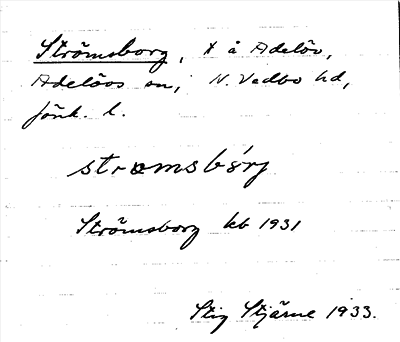 Strömsborg, t å Adelöv,
Adelövs sn, N. Vedbo hd,
Jönk. l.
strœmsbǿrj
Strömsborg kb 1931
Stig Stjärne 1933.